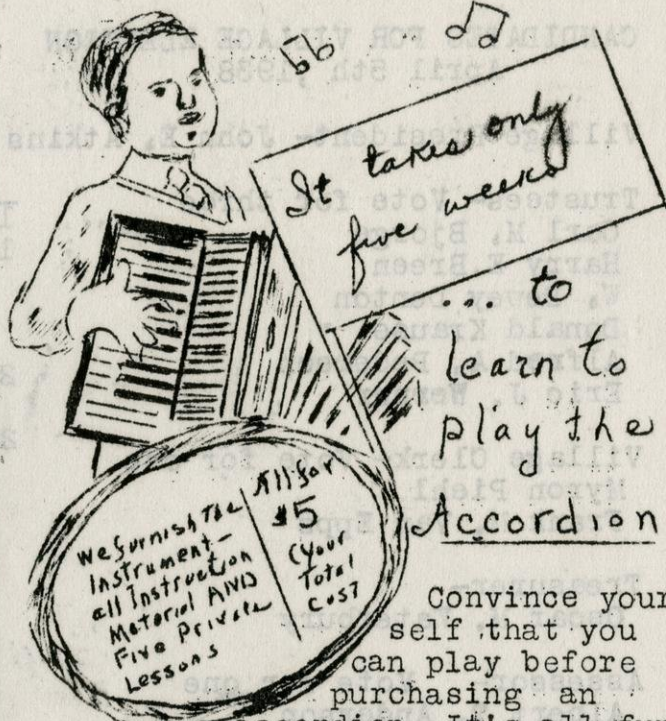 It takes only
five weeks
... to
learn to
play the
Accordion
We furnish The
Instrument-
all Instruction
Material AND
Five Private
Lessons
All for
$5
(Your
Total
Cost
Convince your
self that you
can play before
purchasing an
accordion. It's all